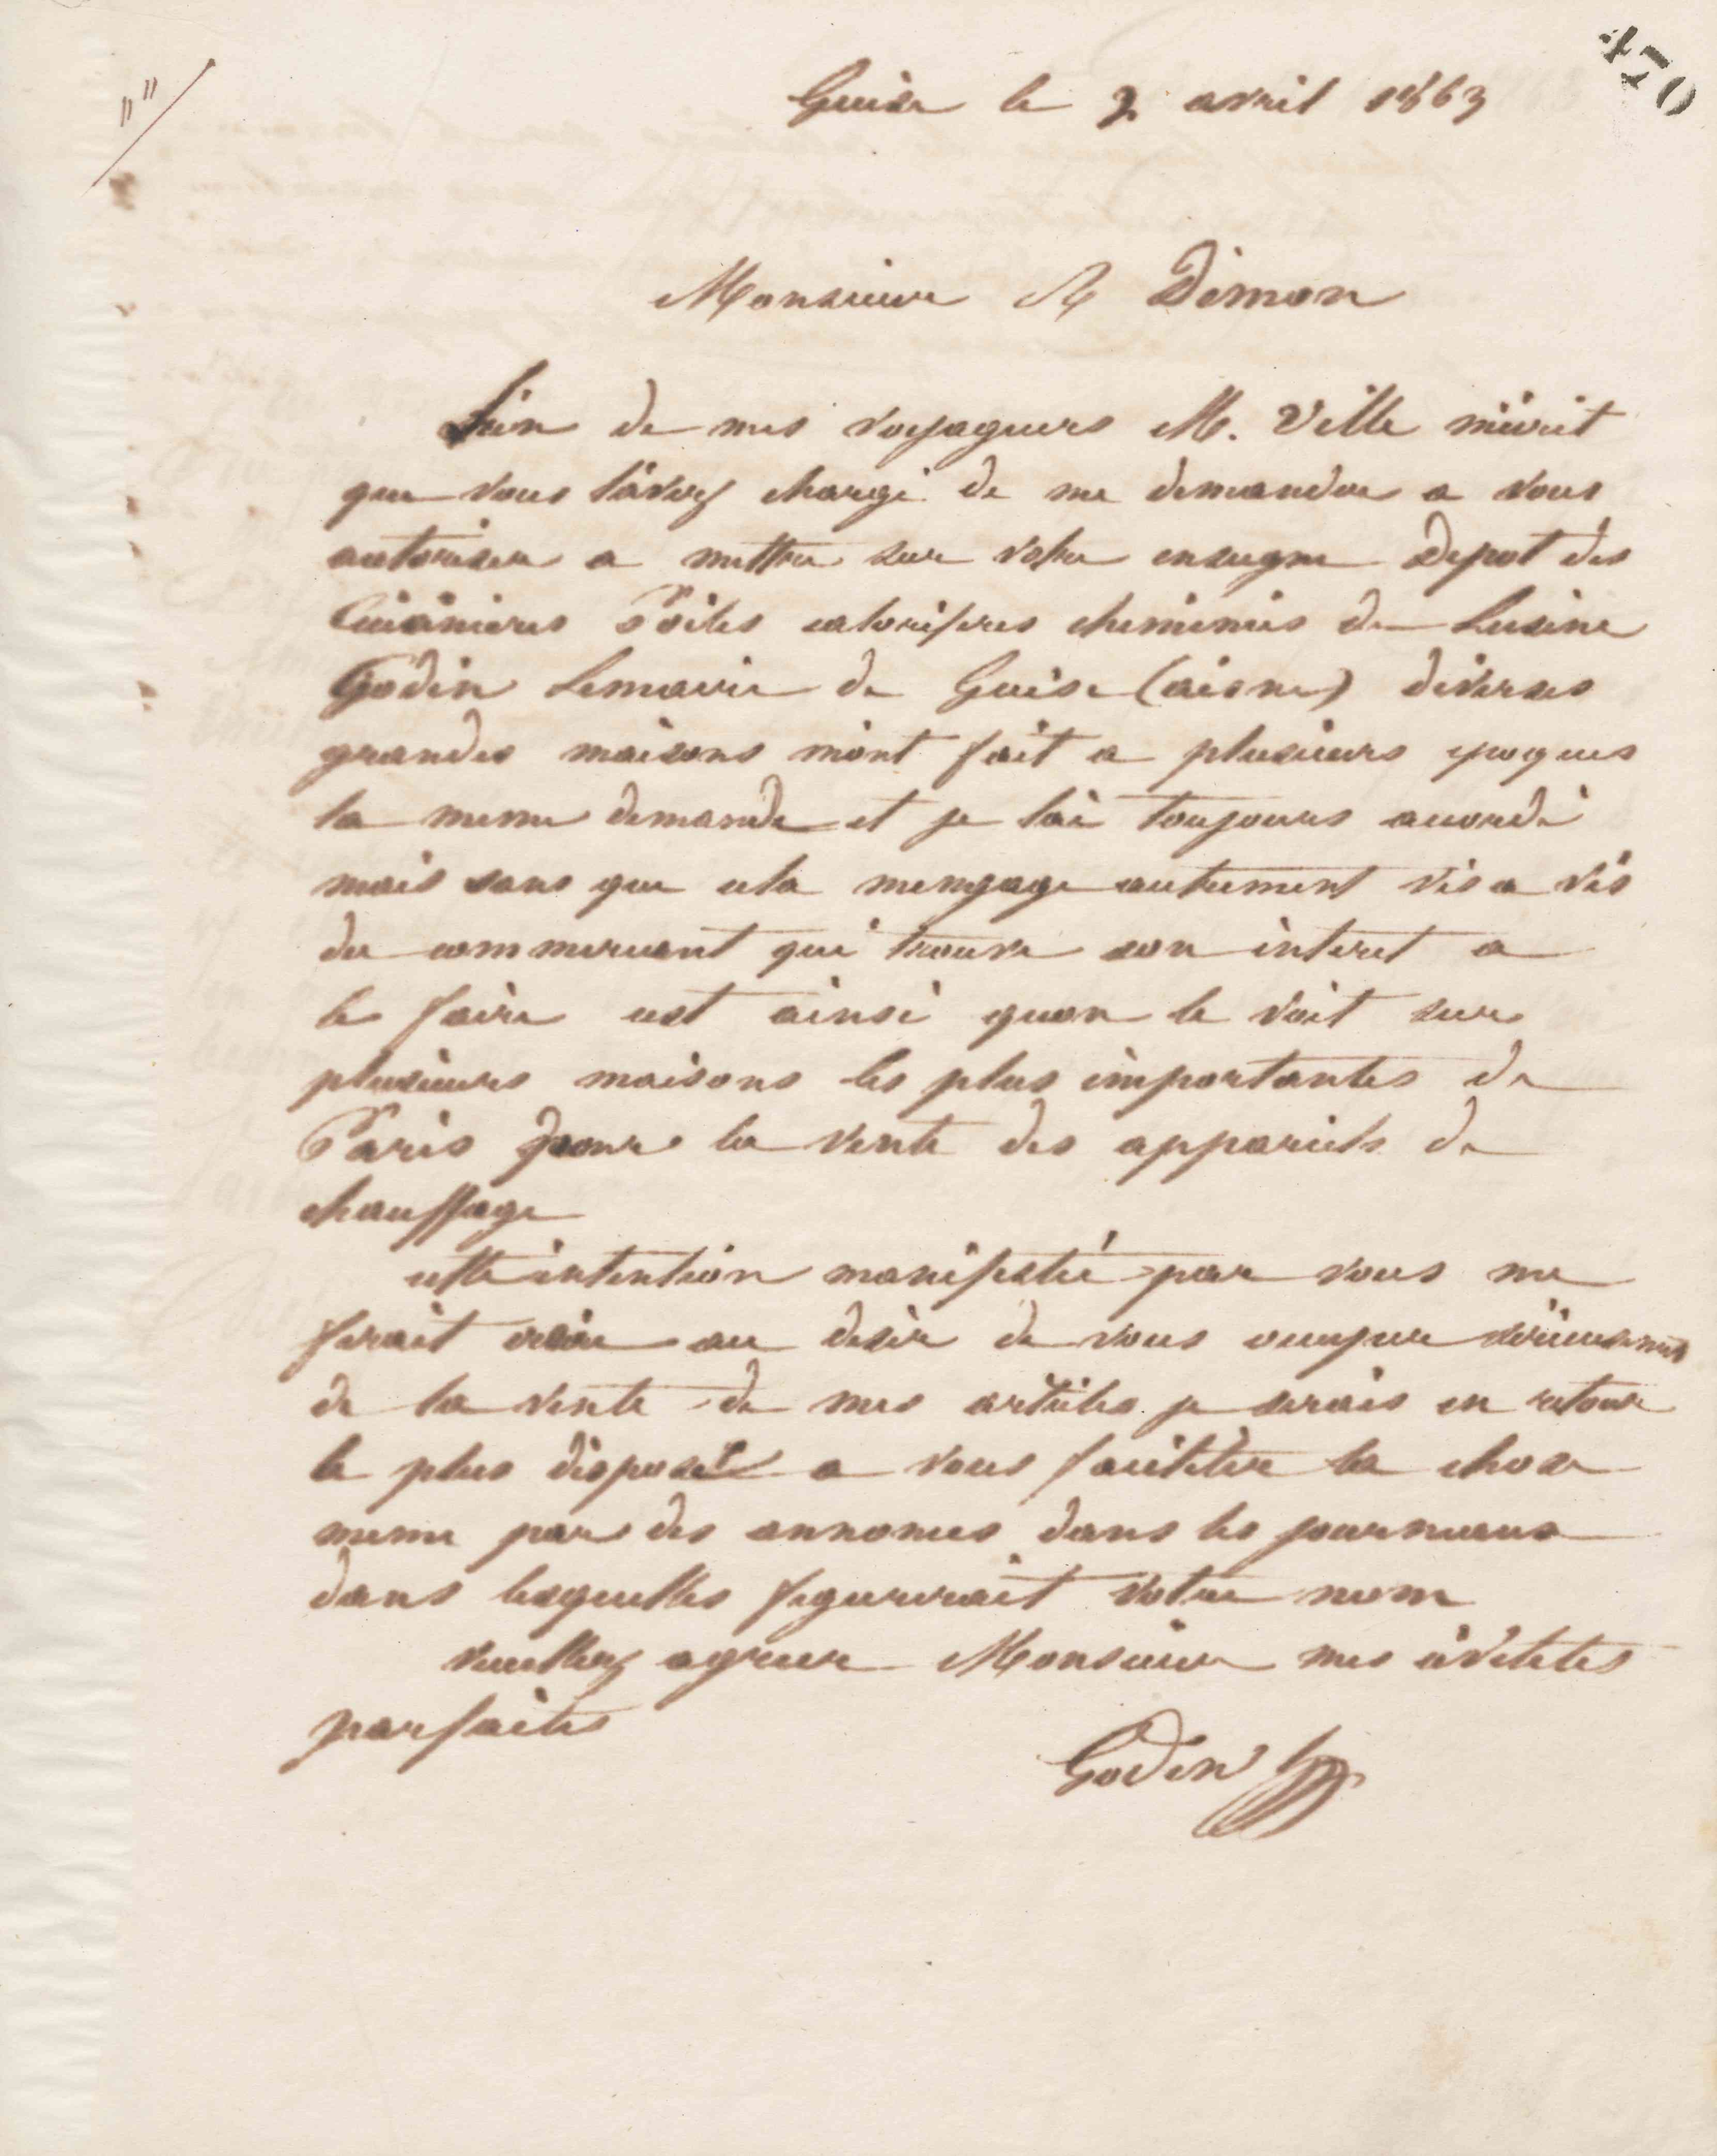 470
""
Guise le 2 avril 1863
Monsieur R Dimon
Lun de mes voyageurs M. Ville m'écrit
que vous l'avez chargé de me demander a vous
autoriser a mettre sur votre enseigne Depot des
Cuisinieres Poëles caloriferes cheminées de Lusine
Godin Lemaire de Guise (aisne) diverses
grandes maisons m'ont fait a plusieurs epoques
la meme demande et je l'ai toujours accordé
mais sans que cela mengage autrement vis a vis
du commercant qui trouve son interet a
le faire cest ainsi quon le voit sur
plusieurs maisons les plus importantes de
Paris pour la vente des appareils de
chauffage
cette intention manifestée par vous me
ferait croire au desir de vous occuper sérieusement
de la vente de mes articles je serais en retour
le plus disposé a vous faciliter la chose
meme par des annonces dans les journeaux
dans lesquelles figurerait votre nom
veuillez agreer Monsieur mes civilités
parfaites
Godin